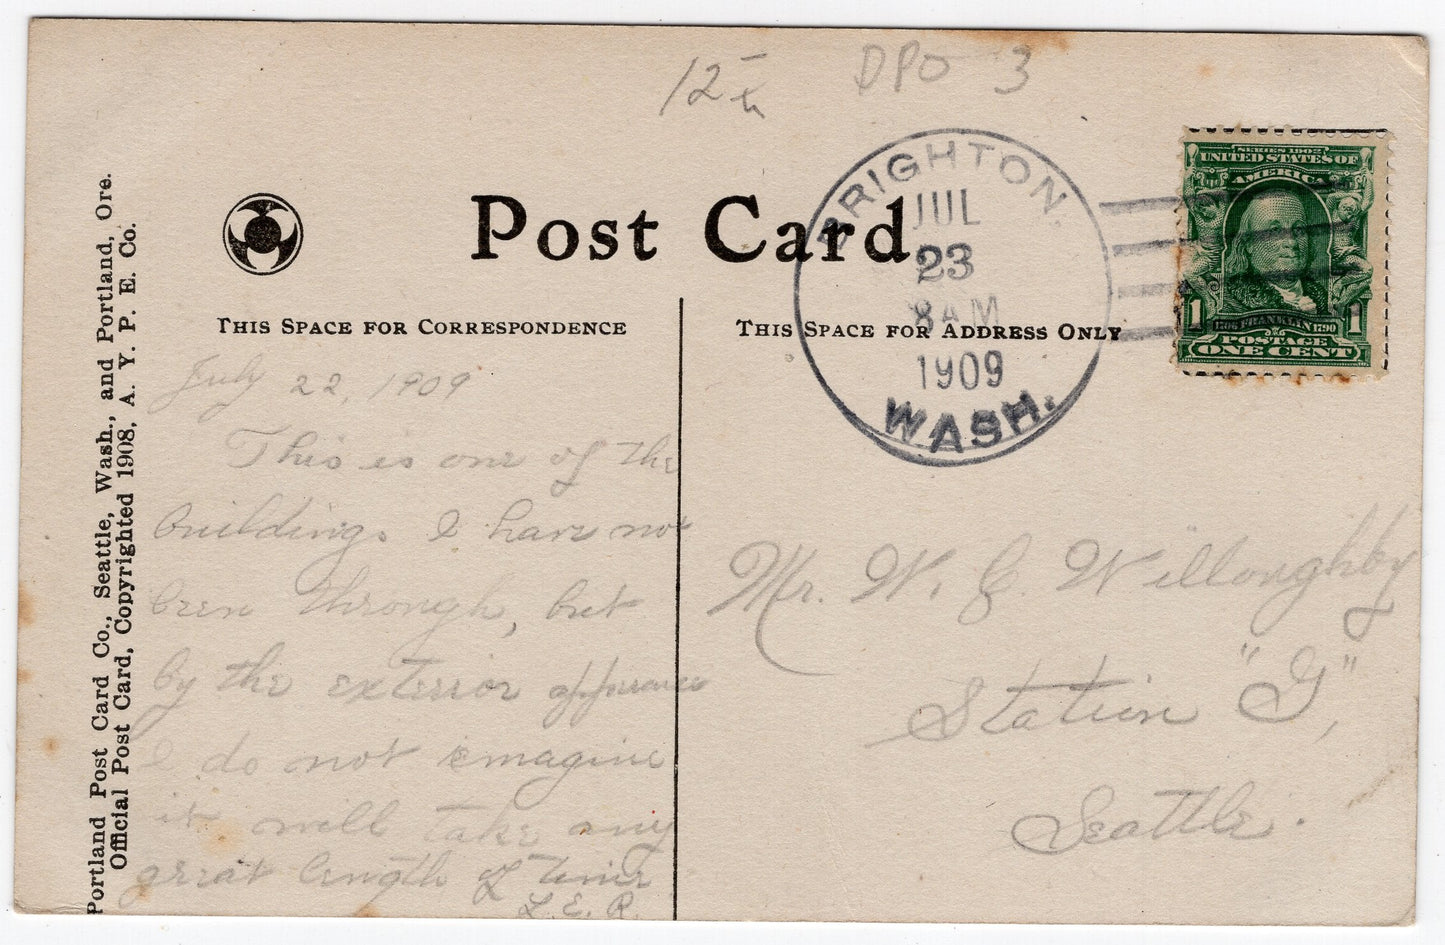 12
DPO 3
Post Card
BRIGHTON.
JUL
23
8 AM
1909
WASH.
SERIES 1902
UNITED STATES OF
AMERICA
1 1706 FRANKLIN 1790 1
POSTAGE
ONE CENT
Portland Post Card Co., Seattle, Wash., and Portland, Ore.
Official Post Card, Copyrighted 1908, A. Y. P. E. Co.
THIS SPACE FOR CORRESPONDENCE
July 22, 1909
This is one of the
buildings I have not
been through, but
by the exterior
I do not imagine
it will take any
great length of time
L. E. R.
THIS SPACE FOR ADDRESS ONLY
Mr. W. C. Willoughby
Station "G",
Seattle.